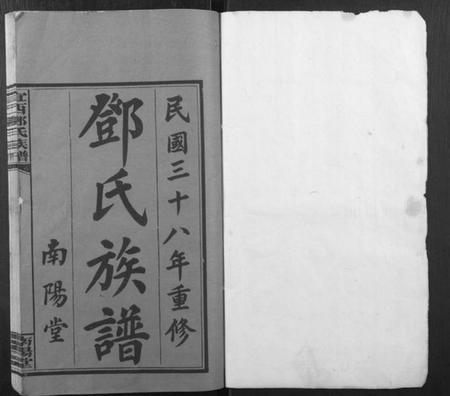 民國三十八年重修
鄧氏族譜
南陽堂
宜西鄧氏族譜
南陽堂